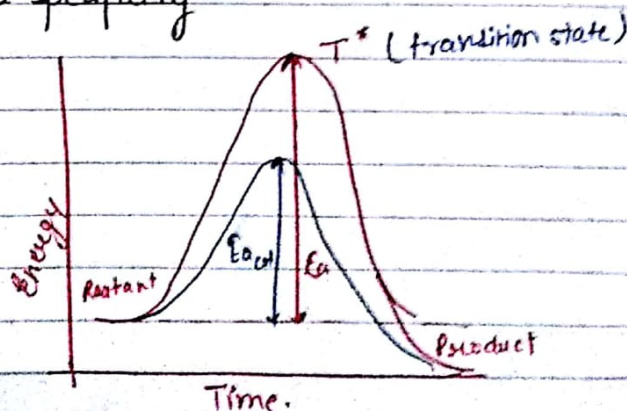 T* (transition state)
Energy
Reatant
Ea cat
Ea
Product
Time.